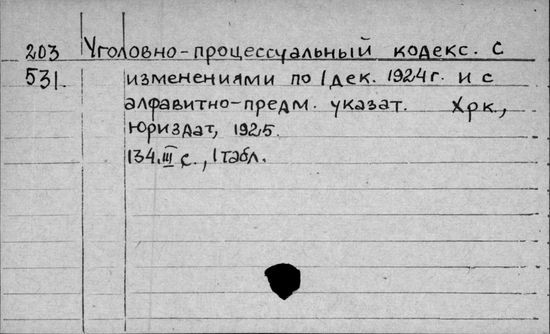 203 Уголовно-процессуальный кодекс. С
531. изменениями по 1 дек. 1924 г. и с
алфавитно-предм. указат. Хрк.,
Юриздат, 1925.
134.III с., 1 табл.